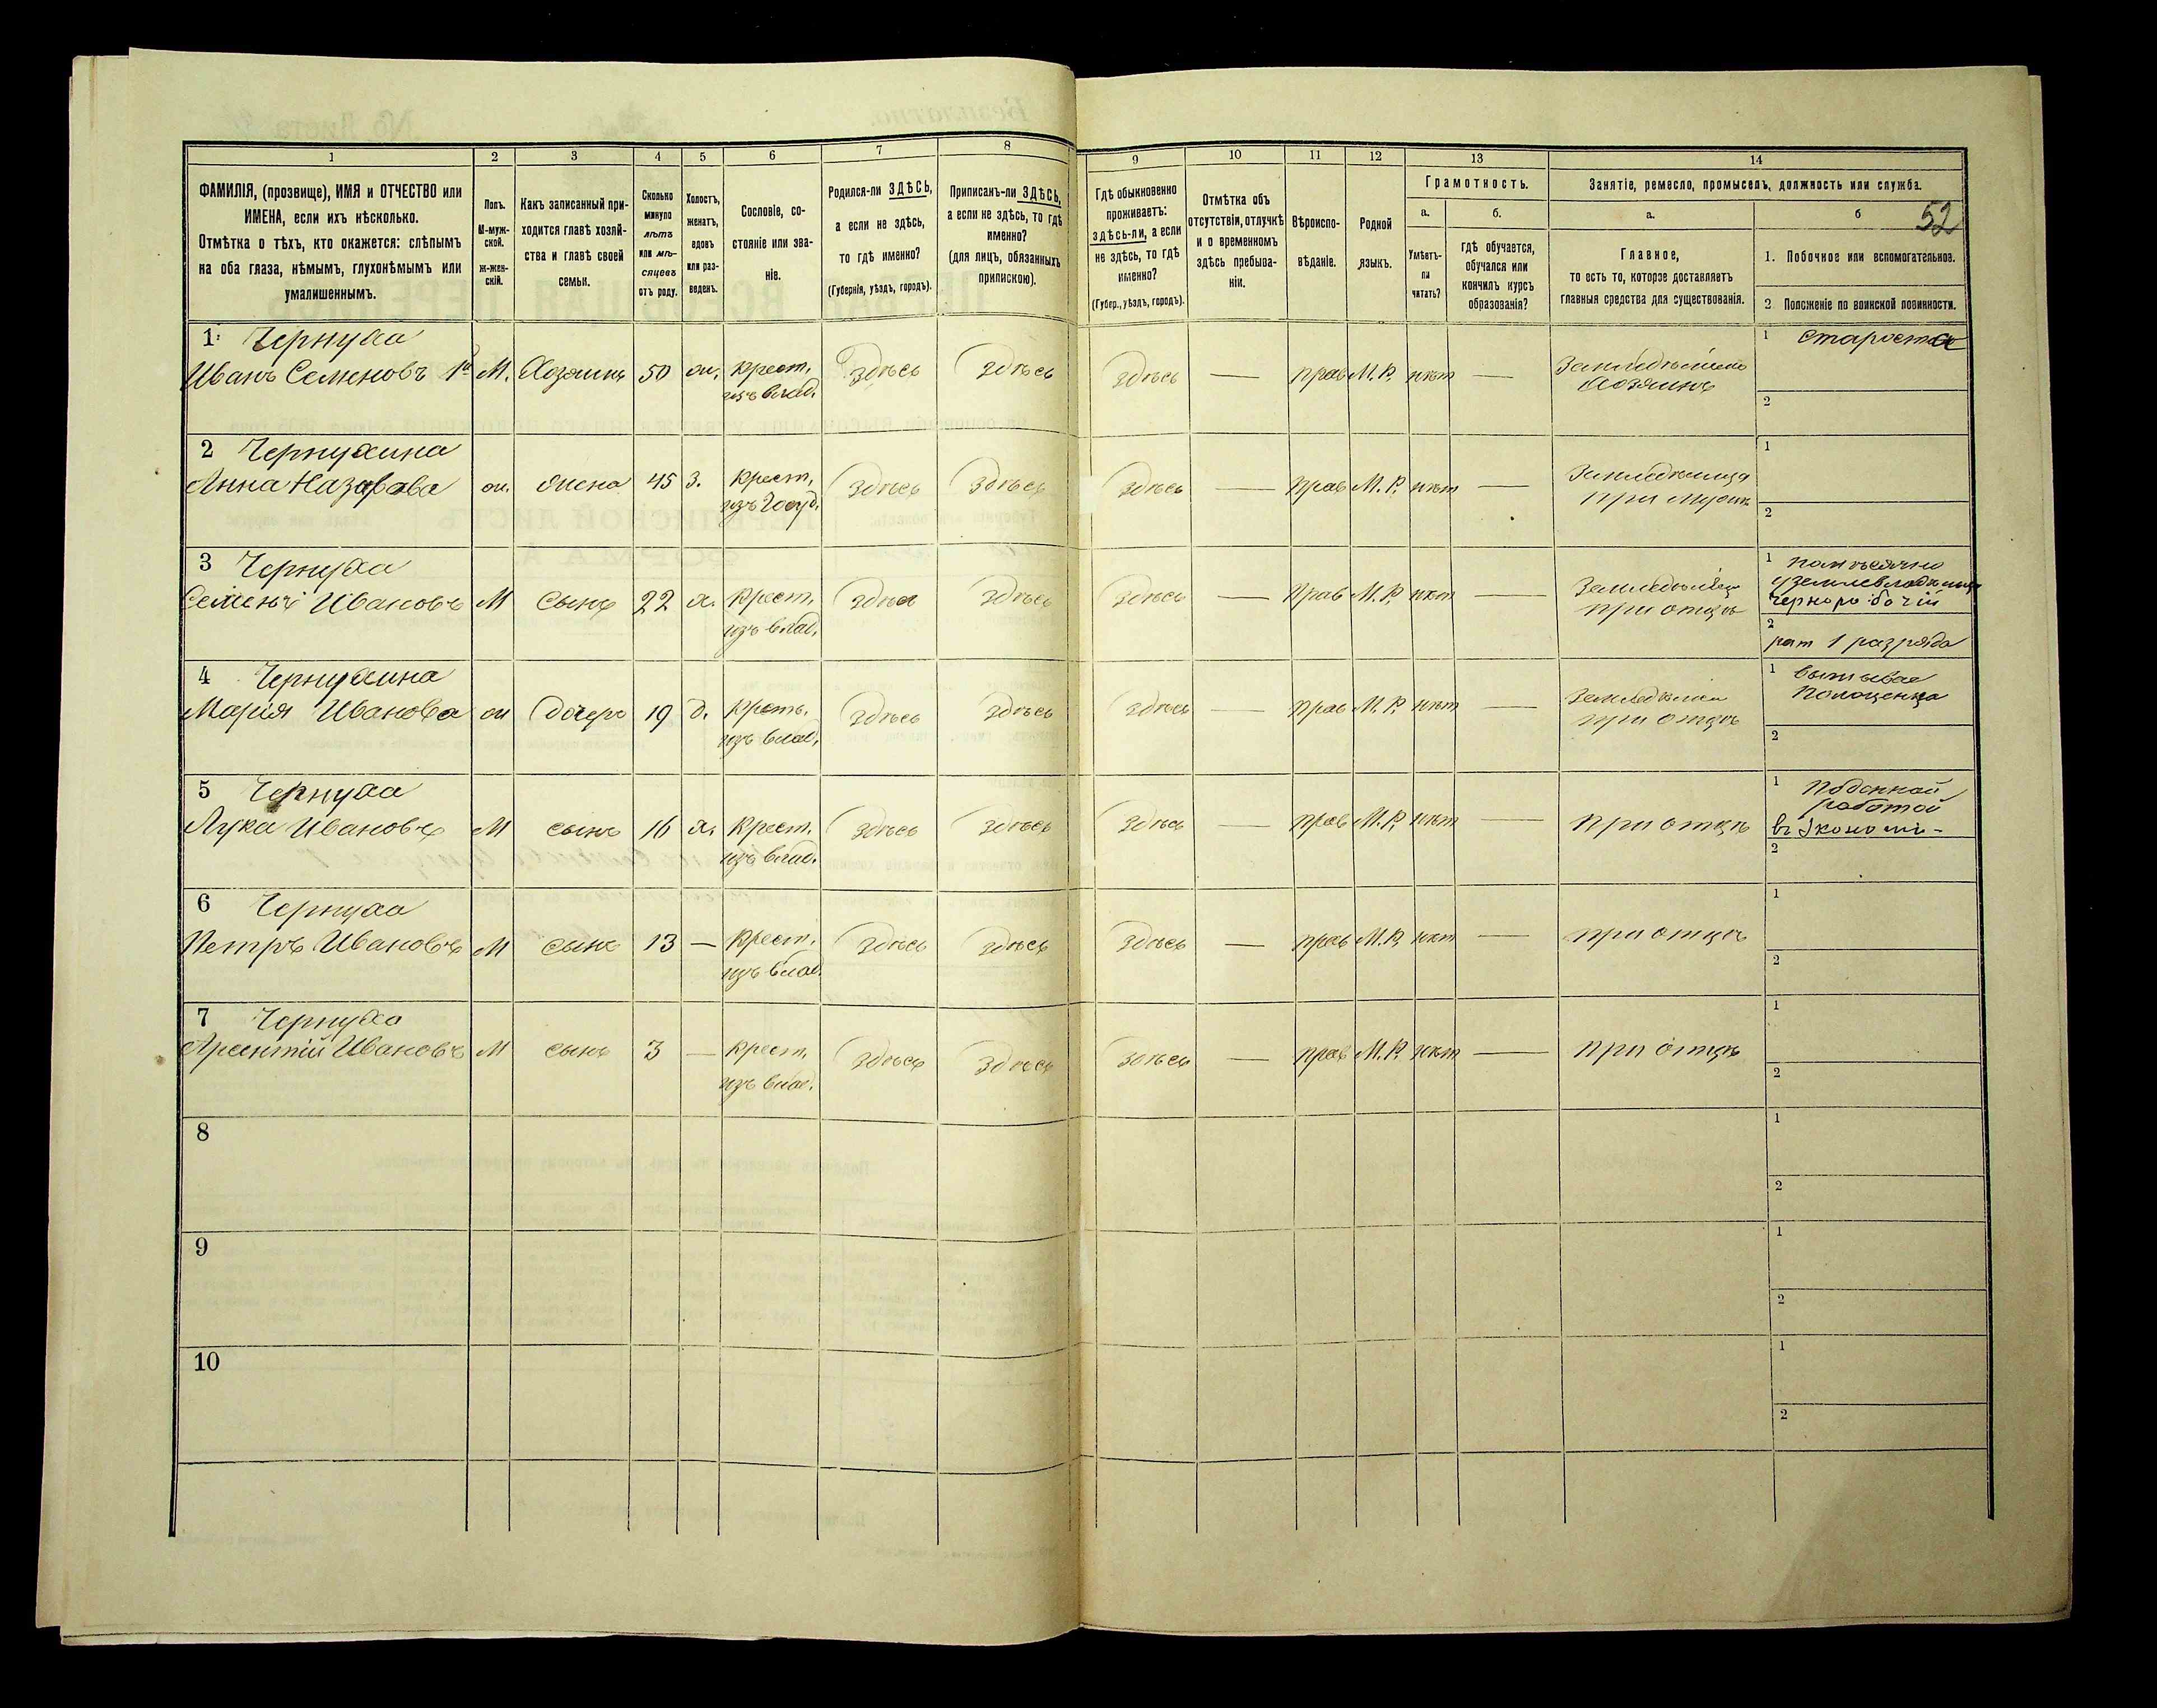 52
1 2 3 4 5 6 7 8 9 10 11 12 13 14
ФАМИЛІЯ, (прозвище), ИМЯ и ОТЧЕСТВО или
ИМЕНА, если ихъ нѣсколько.
Отмѣтка о тѣхъ, кто окажется: слѣпымъ
на оба глаза, нѣмымъ, глухонѣмымъ или
умалишеннымъ.
Полъ.
М-муж-
ской.
ж-жен-
скій.
Какъ записанный при-
ходится главѣ хозяй-
ства и главѣ своей
семьи.
Сколько
минуло
лѣтъ
или мѣ-
сяцевъ
отъ роду.
Холостъ,
женатъ,
вдовъ
или раз-
веденъ.
Сословіе, со-
стояніе или зва-
ніе.
Родился-ли ЗДѢСЬ,
а если не здѣсь,
то гдѣ именно?
(Губернія, уѣздъ, городъ).
Приписанъ-ли ЗДѢСЬ,
а если не здѣсь, то гдѣ
именно?
(для лицъ, обязанныхъ
припискою).
Гдѣ обыкновенно
проживаетъ:
здѣсь-ли, а если
не здѣсь, то гдѣ
именно?
(Губер., уѣздъ, городъ).
Отмѣтка объ
отсутствіи, отлучкѣ
и о временномъ
здѣсь пребыва-
ніи.
Вѣроиспо-
вѣданіе.
Родной
языкъ.
Грамотность.
а.
Умѣетъ-
ли
читать?
б.
гдѣ обучается,
обучался или
кончилъ курсъ
образованія?
Занятіе, ремесло, промыселъ, должность или служба.
а.
Главное,
то есть то, которое доставляетъ
главныя средства для существованія.
б
1. Побочное или вспомогательное.
2 Положеніе по воинской повинности.
1 Чернуха 1 староста
Иванъ Семеновъ 1й М. Хозяинъ 50 ж. крест. здѣсь здѣсь здѣсь — прав М.Р. нѣт —
изъ влад. хозяинъ
2
2 Чернухина 1
Анна Назарова ж. жена 45 з. крест. здѣсь здѣсь здѣсь — прав М.Р. нѣт —
изъ госуд. при мужѣ
2
3 Чернуха 1 помѣсячно
Семенъ Ивановъ М сынъ 22 х. крест. здѣсь здѣсь здѣсь — прав М.Р. нѣт —
изъ влад. при отцѣ чернорабочій
2 рат 1 разряда
4 Чернухина 1
Марія Иванова ж дочерь 19 д. крест. здѣсь здѣсь здѣсь — прав М.Р. нѣт —
изъ влад. при отцѣ
2
5 Чернуха 1 поденной
работой
Лука Ивановъ М сынъ 16 х. крест. здѣсь здѣсь здѣсь — прав М.Р. нѣт — при отцѣ въ экономи-
изъ влад. 2
6 Чернуха 1
Петръ Ивановъ М сынъ 13 — крест. здѣсь здѣсь здѣсь — прав М.Р. нѣт — при отцѣ
изъ влад. 2
7 Чернуха 1
Арсентій Ивановъ М сынъ 3 — крест. здѣсь здѣсь здѣсь — прав М.Р. нѣт — при отцѣ
изъ влад. 2
8 1
2
9 1
2
10 1
2